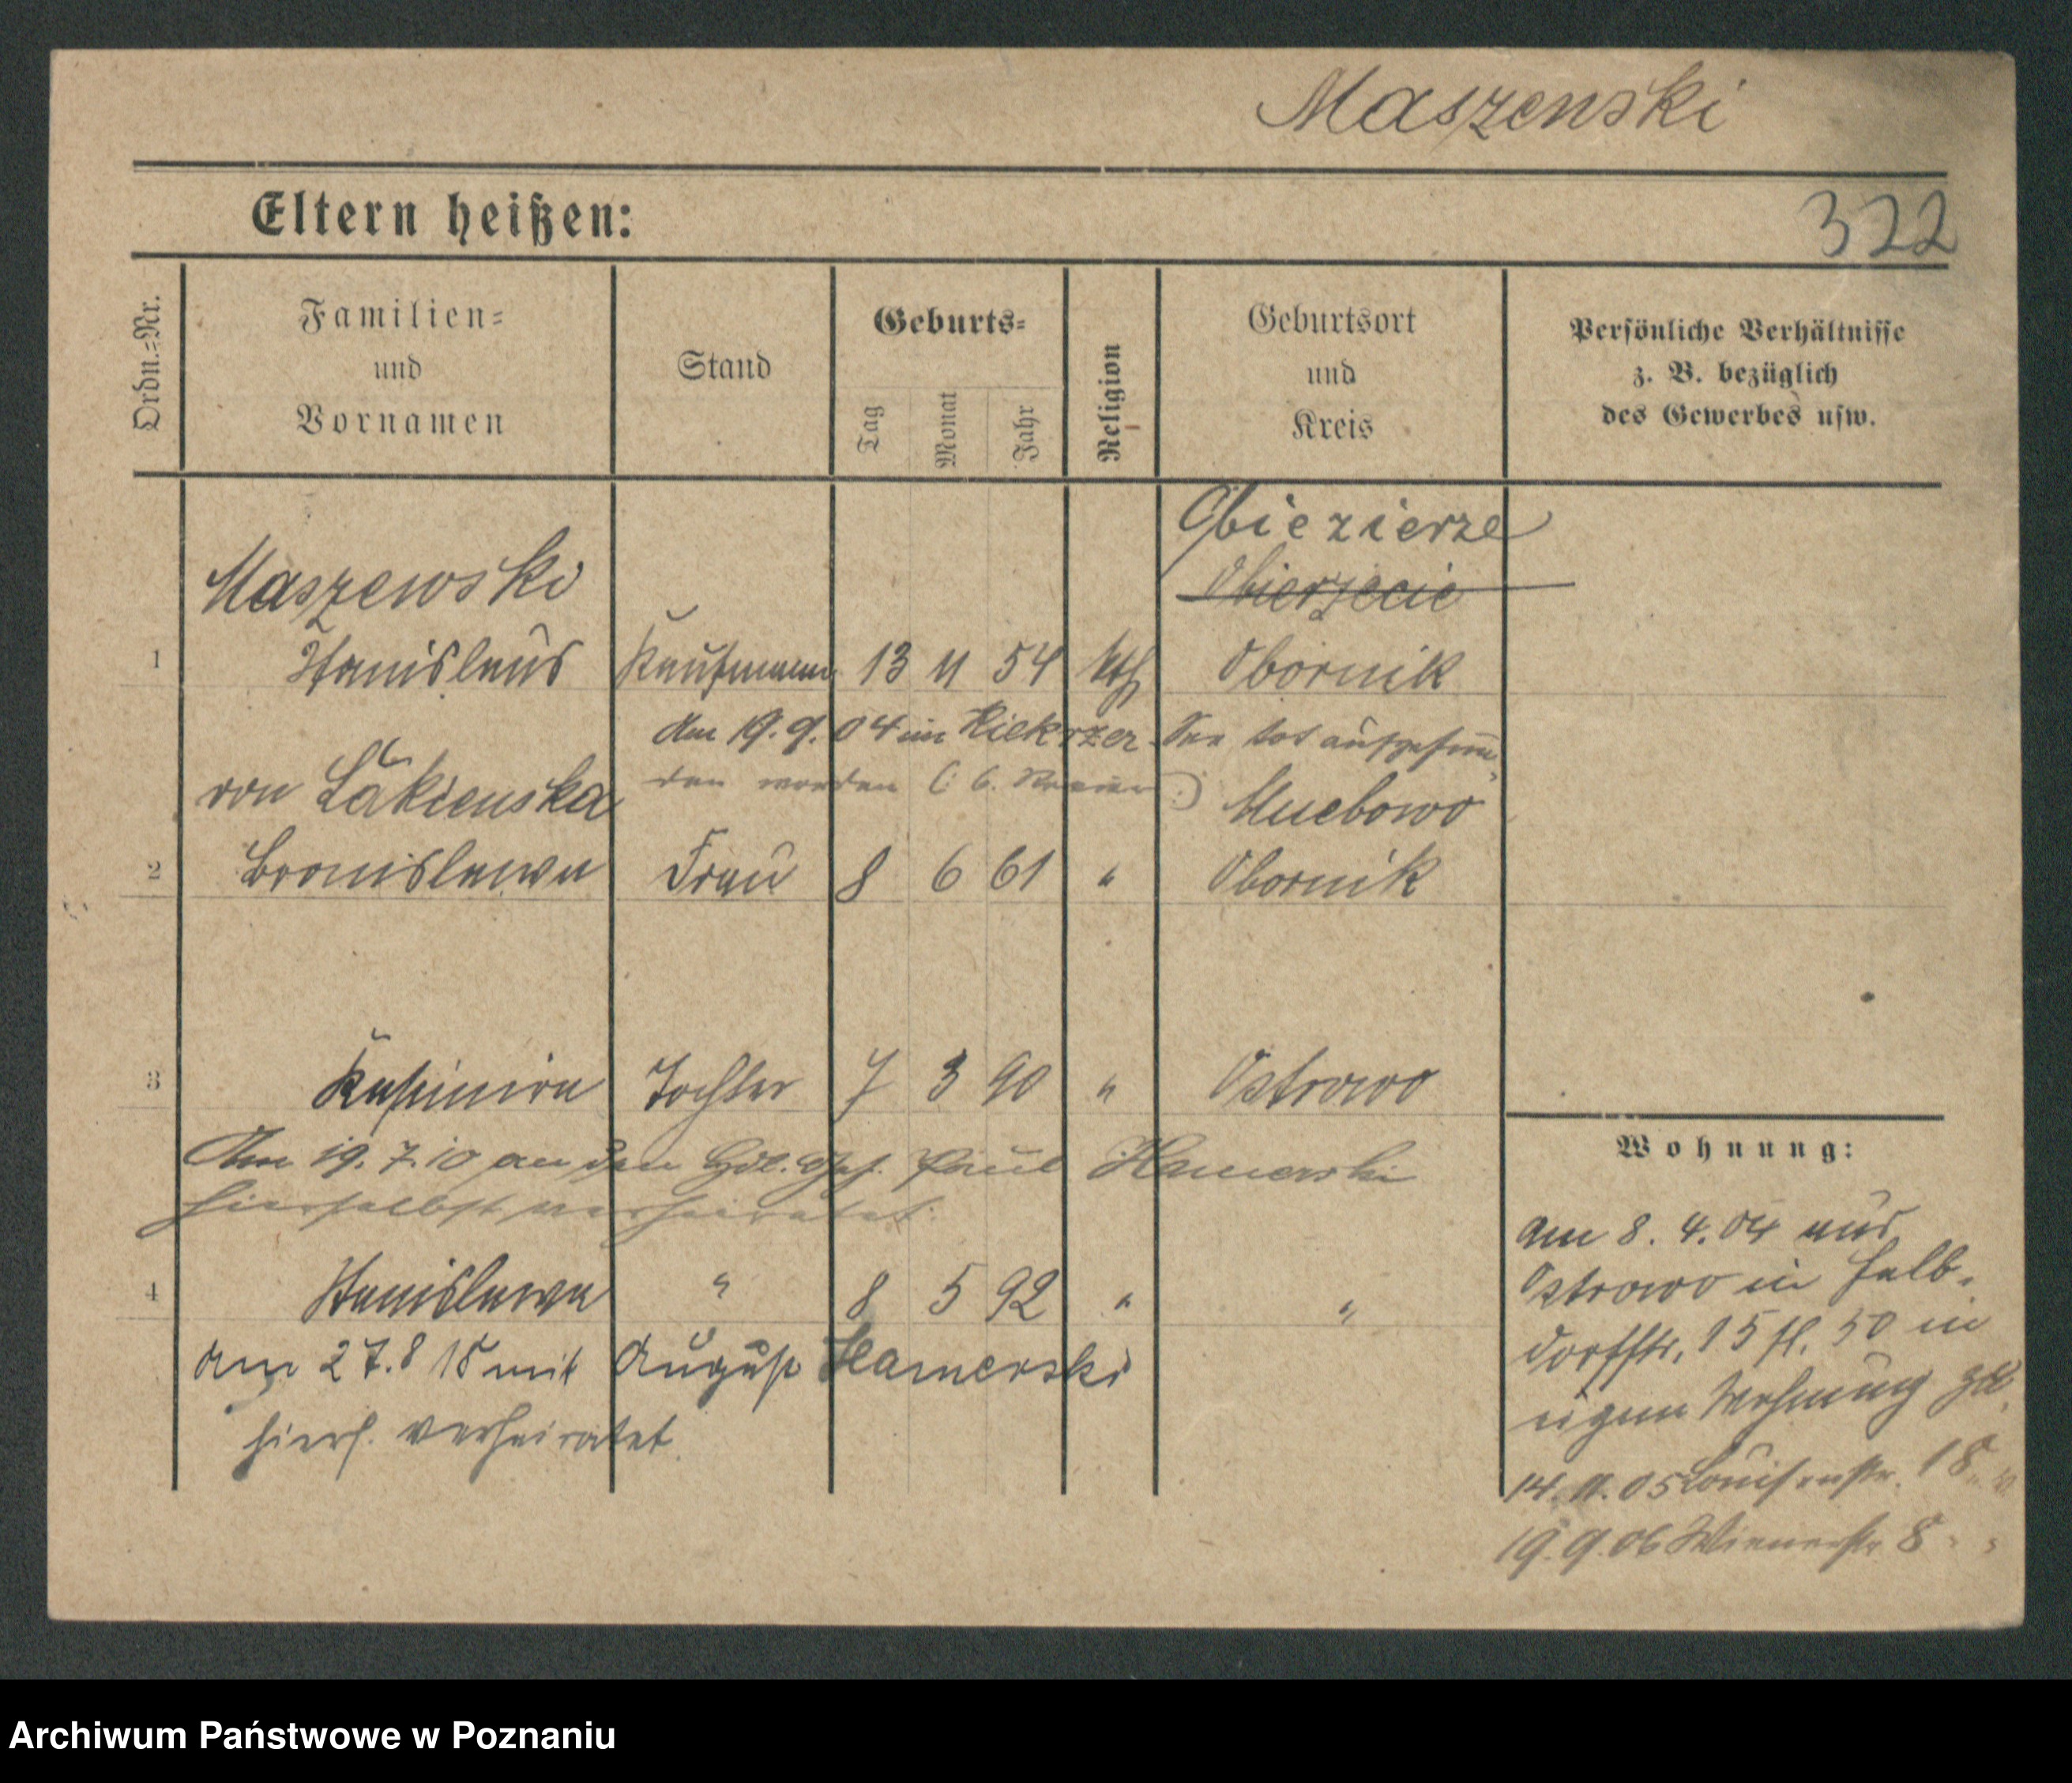 Maszenski
Eltern heißen:
322
Ordn.-Nr.
Familien-
und
Vornamen
Stand
Geburts-
Tag
Monat
Jahr
Religion
Geburtsort
und
Kreis
Persönliche Verhältnisse
z. B. bezüglich
des Gewerbes usw.
Obiezierze
Maszewski
Obierzecie
1 Stanislaus Kaufmann 13 11 54 kth Obornik
Am 19. 9. 04 im Kiekrzer See tot aufgefun-
den worden
von Łakienska
Obornik
2 Bronislawa Frau 8 6 61 "
3 Kasimira Tochter 7 3 90 " Ostrowo
Am 19. 7. 10 an den Hdl. Geh. Paul Hamerski
hierselbst verheiratet.
4 Stanislawa " 8 5 92 " "
am 27. 8 18 mit August Hamerski
hiers. verheiratet.
Wohnung:
am 8. 4. 04 aus
Ostrowo in Halb-
dorffstr. 15 in
eigene Wohnung
14. 11. 05 Louisenstr. 18 "
19. 9. 06 Wienerstr 8 " "
Archiwum Państwowe w Poznaniu